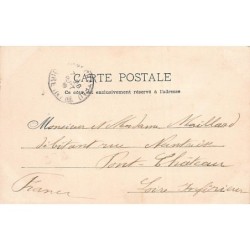 CARTE POSTALE
Ce côté est exclusivement réservé à l'adresse
Monsieur et Madame Maillard
débitant rue Nantaise
Pont-Château
France Loire Inférieure